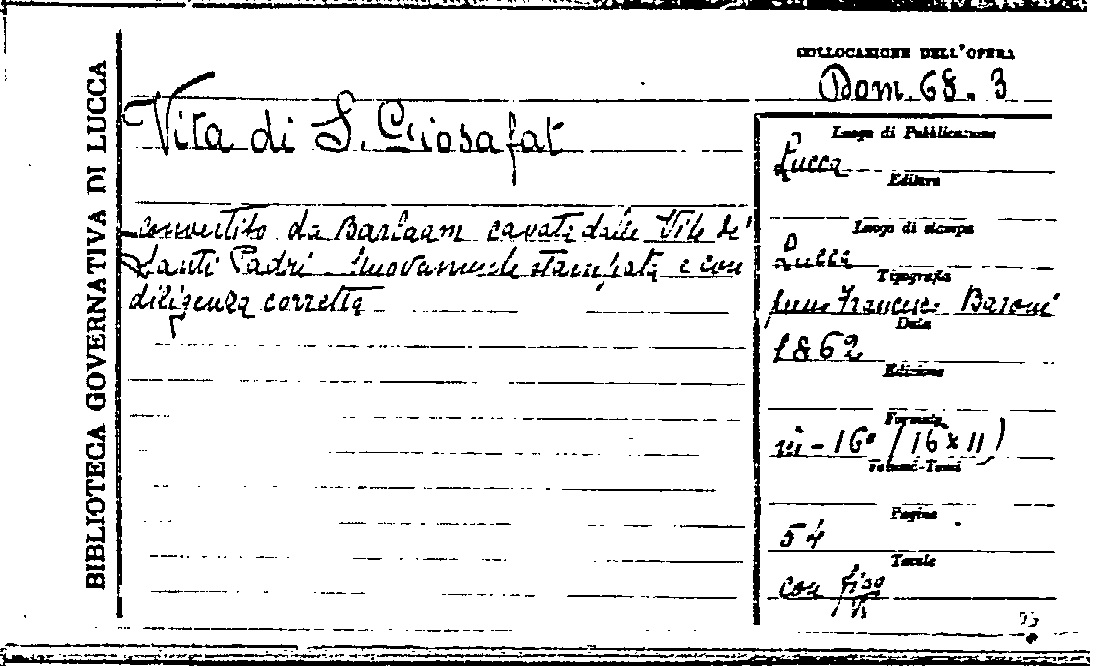 BIBLIOTECA GOVERNATIVA DI LUCCA
COLLOCAZIONE DELL'OPERA
Dom. 68. 3
Vita di S. Giosafat
convertito da Barlaam cavata dalle Vite de'
Santi Padri. Nuovamente stampata e con
diligenza corretta
Luogo di Pubblicazione
Lucca
Editore
Luogo di stampa
Lucca
Tipografia
Francesco Baroni
Data
1862
Edizione
Formato
in-16° (16x11)
Volumi-Tomi
Pagine
54
Tavole
con